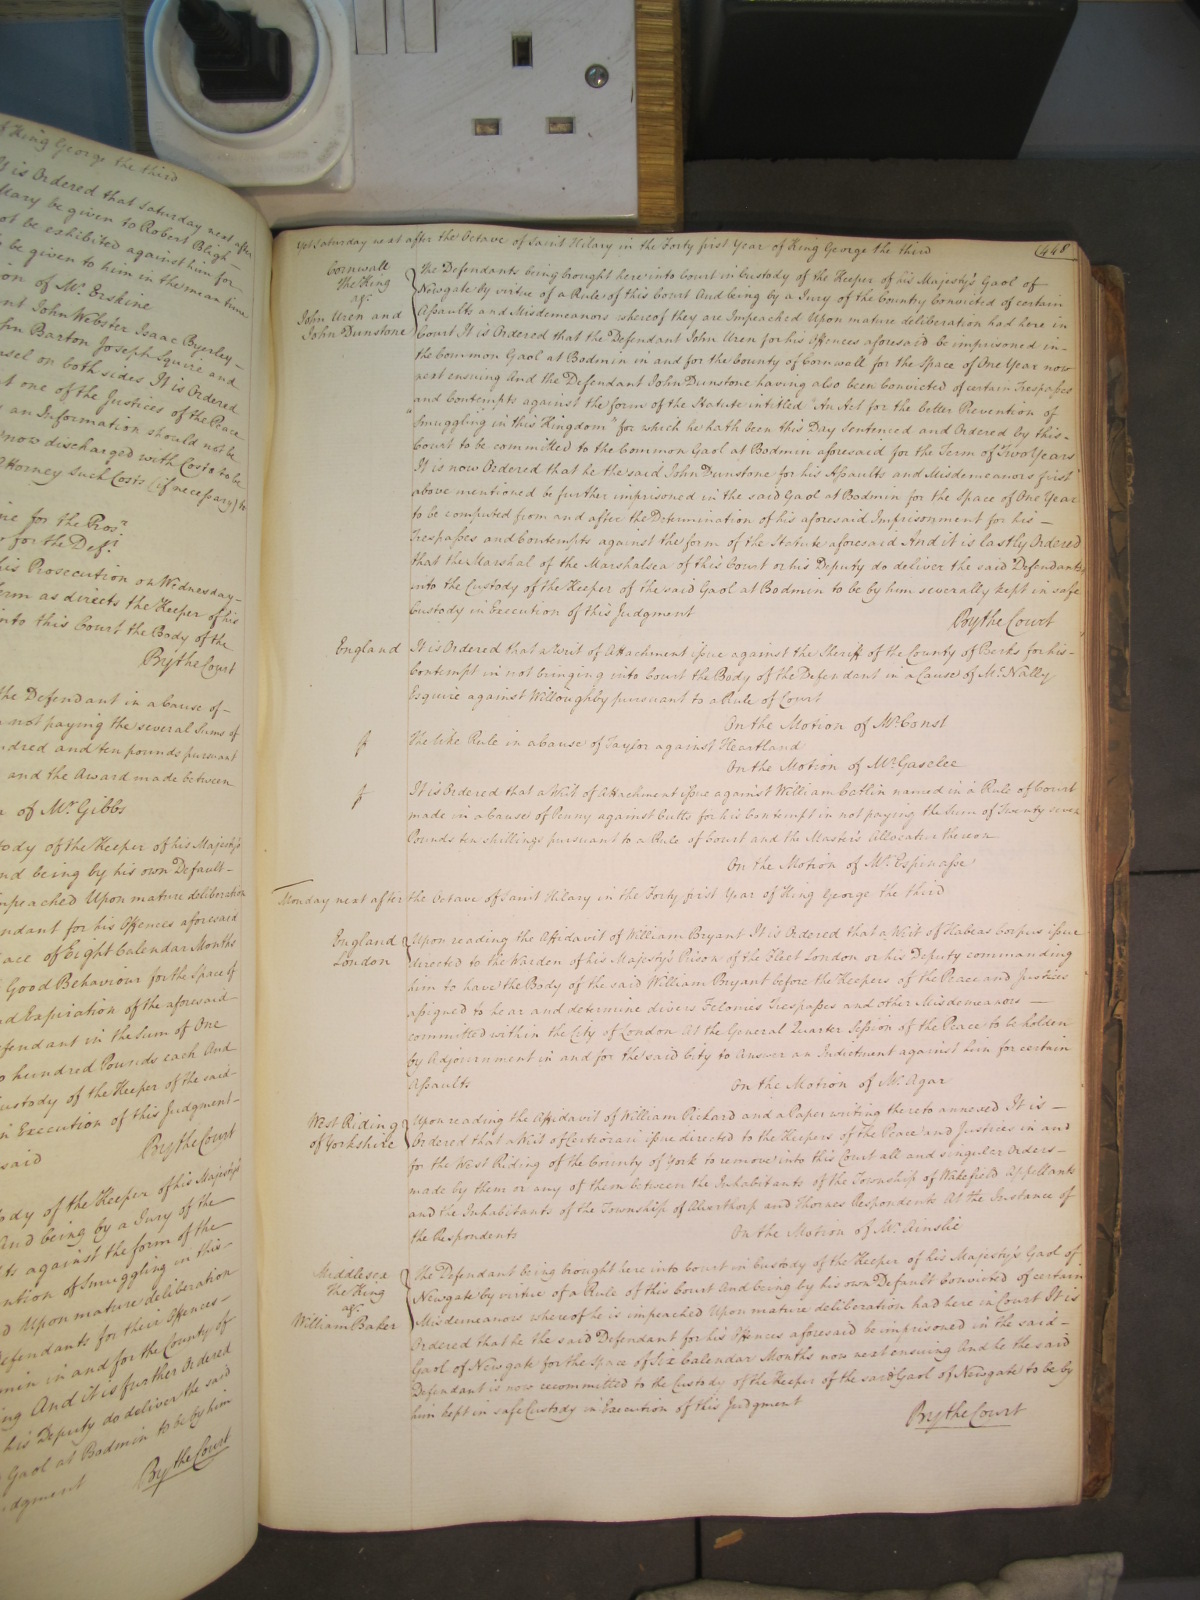 of King George the third
It is Ordered that Saturday next after
Mary be given to Robert Bligh
not be exhibited against him for
be given to him in the mean time
ion of Mr. Erskine
nt John Webster Isaac Byerley
hn Barton Joseph Squire and
nsel on both sides It is Ordered
t one of the Justices of the Peace
an Information should not be
now discharged with Costs to be
Attorney such Costs (if necessary) to
ne for the Pros.r
for the Def.t
his Prosecution on Wednesday
Term as directs the Keeper of his
into this Court the Body of the
By the Court
the Defendant in a Cause of
not paying the several Sums of
ndred and ten pounds pursuant
and the Award made between
of Mr. Gibbs
tody of the Keeper of his Majesty's
nd being by his own Default
mpeached Upon mature deliberation
ndant for his Offences aforesaid
ace of Eight Calendar Months
Good Behaviour for the Space of
nd Expiration of the aforesaid
efendant in the Sum of One
hundred Pounds each And
ustody of the Keeper of the said
in Execution of this Judgment
said By the Court
ody of the Keeper of his Majesty's
And being by a Jury of the
ts against the form of the
ntion of Smuggling in this
d Upon mature deliberation
Defendants for their Offences
min in and for the County of
ing And it is further Ordered
his Deputy do deliver the said
Gaol at Bodmin to be by him
udgment By the Court
Yet Saturday next after the Octave of Saint Hilary in the Forty first Year of King George the third (448
Cornwall
The King
agt.
John Uren and
John Dunstone
The Defendants being brought here into Court in Custody of the Keeper of his Majesty's Gaol of
Newgate by virtue of a Rule of this Court And being by a Jury of the Country Convicted of certain
Assaults and Misdemeanors whereof they are Impeached Upon mature deliberation had here in
Court It is Ordered that the Defendant John Uren for his Offences aforesaid be imprisoned in
the Common Gaol at Bodmin in and for the County of Cornwall for the Space of One Year now
next ensuing And the Defendant John Dunstone having also been Convicted of certain Trespasses
and Contempts against the form of the Statute intitled "An Act for the better Prevention of
"Smuggling in this Kingdom" for which he hath been this Day Sentenced and Ordered by this
Court to be committed to the Common Gaol at Bodmin aforesaid for the Term of Two Years
It is now Ordered that he the said John Dunstone for his Assaults and Misdemeanors first
above mentioned be further imprisoned in the said Gaol at Bodmin for the Space of One Year
to be computed from and after the Determination of his aforesaid Imprisonment for his
Trespasses and Contempts against the form of the Statute aforesaid And it is lastly Ordered
that the Marshal of the Marshalsea of this Court or his Deputy do deliver the said Defendants
into the Custody of the Keeper of the said Gaol at Bodmin to be by him severally kept in safe
Custody in Execution of this Judgment By the Court
England It is Ordered that a Writ of Attachment issue against the Sheriff of the County of Berks for his
Contempt in not bringing into Court the Body of the Defendant in a Cause of Mc.Nally
Esquire against Willoughby pursuant to a Rule of Court
On the Motion of Mr. Const
The like Rule in a Cause of Taylor against Heartland
On the Motion of Mr. Gaselee
It is Ordered that a Writ of Attachment issue against William Catlin named in a Rule of Court
made in a Cause of Penny against Cutts for his Contempt in not paying the Sum of Twenty seven
Pounds ten shillings pursuant to a Rule of Court and the Master's Allocatur thereon
On the Motion of Mr. Espinasse
Monday next after the Octave of Saint Hilary in the Forty first Year of King George the third
England
London
Upon reading the Affidavit of William Bryant It is Ordered that a Writ of Habeas Corpus issue
directed to the Warden of his Majesty's Prison of the Fleet London or his Deputy commanding
him to have the Body of the said William Bryant before the Keepers of the Peace and Justices
assigned to hear and determine divers Felonies Trespasses and other Misdemeanors
committed within the City of London At the General Quarter Session of the Peace to be holden
by Adjournment in and for the said City to Answer an Indictment against him for certain
Assaults On the Motion of Mr. Agar
West Riding
of Yorkshire
Upon reading the Affidavit of William Pickard and a Paper writing thereto annexed It is
Ordered that a Writ of Certiorari issue directed to the Keepers of the Peace and Justices in and
for the West Riding of the County of York to remove into this Court all and singular Orders
made by them or any of them between the Inhabitants of the Township of Wakefield Appellants
and the Inhabitants of the Township of Alverthorp and Thornes Respondents At the Instance of
the Respondents On the Motion of Mr. Ainslie
Middlesex
The King
agt.
William Baker
The Defendant being brought here into Court in Custody of the Keeper of his Majesty's Gaol of
Newgate by virtue of a Rule of this Court And being by his own Default Convicted of certain
Misdemeanors whereof he is impeached Upon mature deliberation had here in Court It is
Ordered that he the said Defendant for his Offences aforesaid be imprisoned in the said
Gaol of Newgate for the Space of Six Calendar Months now next ensuing And he the said
Defendant is now recommitted to the Custody of the Keeper of the said Gaol of Newgate to be by
him kept in safe Custody in Execution of this Judgment
By the Court